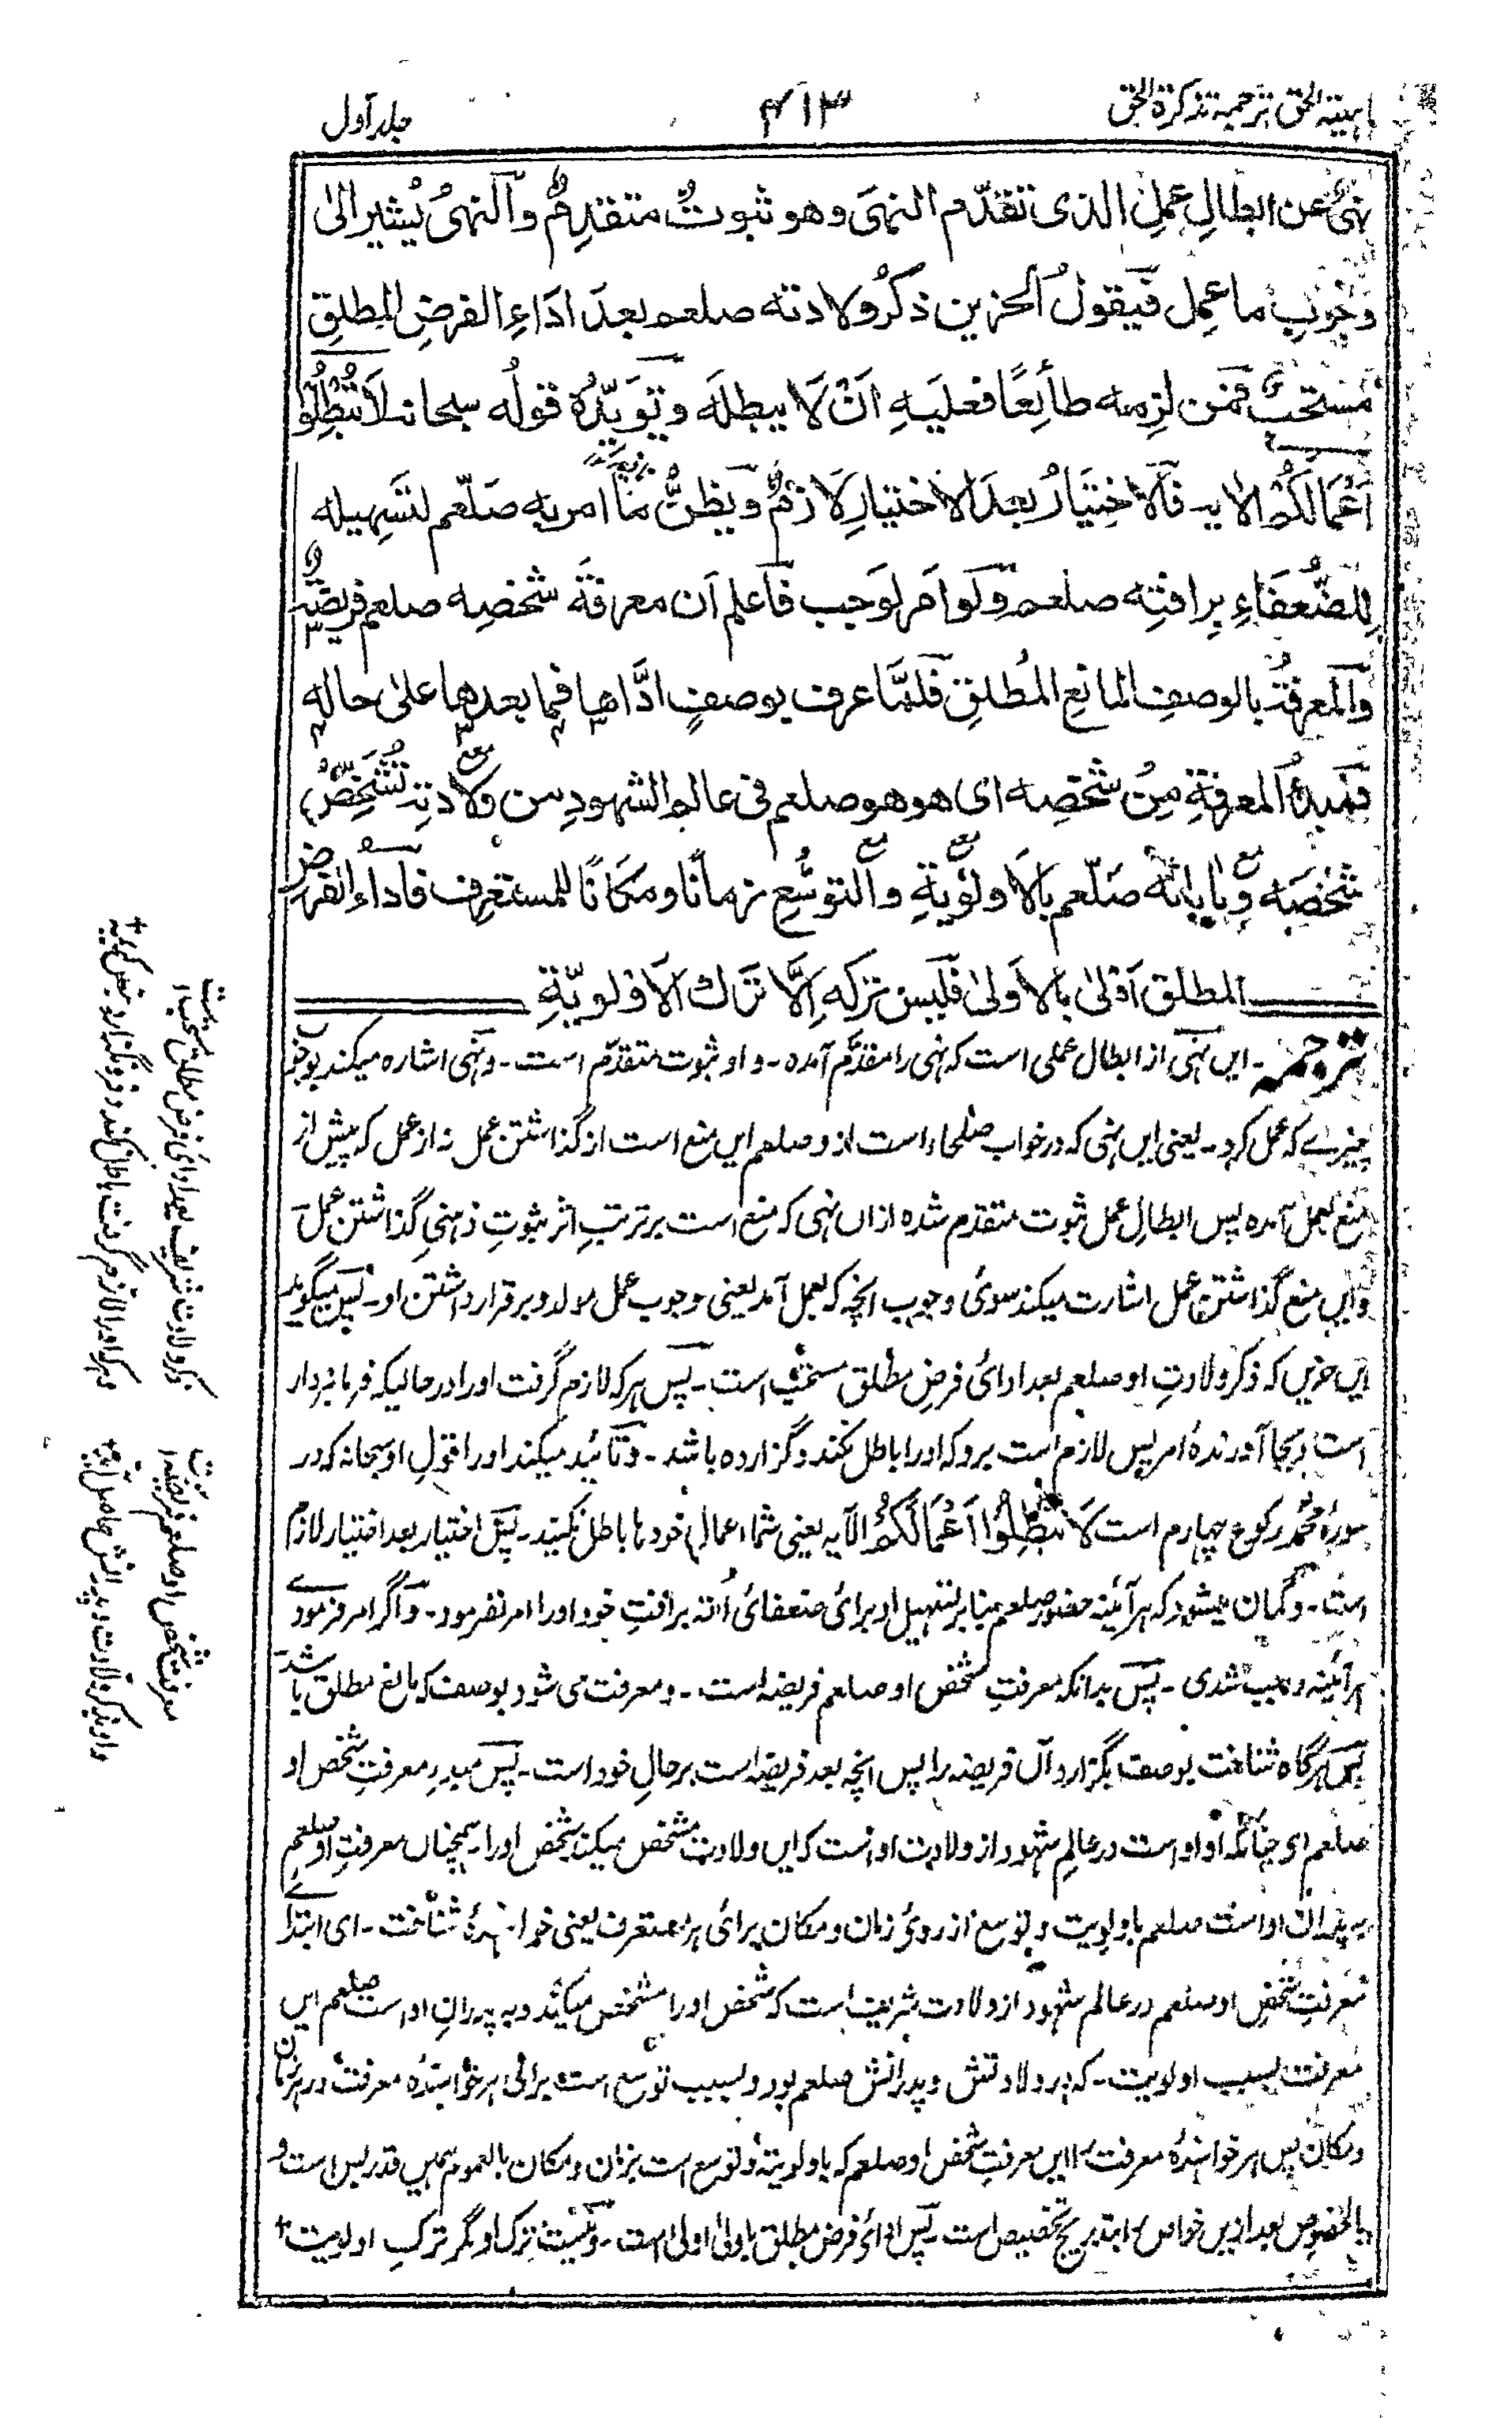 ترجمة تذكرة الحق
۴۱۳
جلد اول
نهىٌ عن ابطالِ عملِ الذى تقدّم النهىَ وهو ثبوتٌ متقدِمٌ والنهىُ يُشير الىٰ
وجوبِ ما عمِل فيقولُ الحزين ذكرُ ولادته صلعم بعدَ اداءِ الفرضِ المطلقِ
مستحبٌ فمن لزمه طائِعًا فعليهِ اَنْ لَا يبطلَه وتؤيّدُهٗ قولُه سبحانه لَا تُبْطِلُوْا
اَعْمَالَكُمْ الايه فَالاختِيَارُ بعدَ الاختيارِ لَازمٌ ويظنُّ ما امر به صَلّعم لتَسهِيله
لِلضُّعَفَاءِ بِرافتِهٖ صلعم ولَو اَمَر لَوَجب فاعلم اَن معرفةَ شخصِه صلعم فريضة
والمعرفةُ بالوصفِ المانعِ المُطلقِ فلمّا عرف بوصفٍ ادَّاها فما بعدها علىٰ حالهٖ
فمبدءُ المعرفةِ مِنْ شخصِه اى هو هو صلعم فى عالم الشهودِ من ولَادتِه تُشَخِّصُ
شخصَه وبابائه صَلّعم بالاَولَوِيةِ والتوسُّعِ زمانًا ومكانًا للمستعرِف فاداء الفرض
المطلق اَوْلىٰ بالاَولىٰ فليس تركه اِلَّا ترك الاَوْلويّةِ
ترجمه ۔ ایں نہی از ابطال عملی است کہ نہی را مقدّم آمدہ ۔ و او ثبوت متقدّم است ۔ و نہی اشارہ میکند بوجوب
چیزے کہ عمل کرد ۔ یعنی ایں نہی کہ در خواب صلحاء است از و صلعم ایں منع است از گذاشتن عمل نہ از عمل کہ پیش از
منع بعمل آمدہ پس ابطالِ عمل ثبوت متقدم شدہ ازاں نہی کہ منع است بر ترتبِ اثر ثبوتِ ذہنیِ گذاشتن عمل
و ایں منع گذاشتن عمل اشارت میکند سوئ وجوب آنچہ کہ بعمل آمد یعنی وجوب عمل مولد و برقرار داشتن او ۔ پس میگوید
ایں حزیں کہ ذکر ولادتِ او صلعم بعد ادائ فرضِ مطلق مستحب است ۔ پس ہر کہ لازم گرفت اورا در حالیکہ فرمانبردار
است و بجا آورندۂ امر پس لازم است برو کہ اورا باطل نکند و گزاردہ باشد ۔ و تائید میکند اورا قولِ او سبحانہ کہ در
سورۂ محمد رکوع چہارم است لَا تُبْطِلُوْا اَعْمَالَكُمْ الآیہ یعنی شما اعمال خودہا باطل نکنید ۔ پس اختیار بعد اختیار لازم
است ۔ و گمان میشود کہ ہر آئینہ حضور صلعم بنابر تسہیل او برائ ضعفائ اُمّتہ برافتِ خود اورا امر نفرمود ۔ و اگر امر فرمودے
ہر آئینہ واجب شدی ۔ پس بدانکہ معرفتِ شخص او صلعم فریضہ است ۔ و معرفت می شود بوصف کہ مانع مطلق باشد
پس ہرگاہ شناخت بوصف بگزارد آں فریضہ را پس آنچہ بعد فریضہ است بر حالِ خود است ۔ پس مبدءِ معرفتِ شخص او
صلعم ای چنانکہ او او است در عالمِ شہود از ولادتِ او است کہ ایں ولادت مشخص میکند شخص اورا ۔ ہمچناں معرفتِ او صلعم
بہ پدران او است صلعم باولویت و توسع از روئ زمان و مکان برائ ہر مستعرف یعنی خواہندۂ شناخت ۔ ای ابتداے
معرفتِ شخصِ او صلعم در عالم شہود از ولادت شریف است کہ شخص اورا مشخص میکند و بہ پدرانِ او است صلعم ایں
معرفت بسبب اولویت ۔ کہ در ولادتش و پدرانش صلعم بود و بسبب توسع است برائ ہر خواہندۂ معرفت در ہر زمان
و مکان پس ہر خواہندۂ معرفت را ایں معرفتِ شخص او صلعم کہ باولویتہ و توسع است بزمان و مکان بالعموم ہمیں قدر بس است و
بالخصوص بعد ازیں خواص را بتدریج تخصیص است ۔ پس ادائ فرض مطلق باولیٰ اولیٰ است ۔ و نیست ترک او مگر ترکِ اولویت +
ذکر ولادت شریف بعد ادائ فرض مطلق مستحب است
معرفت شخص او صلعم فریضہ است